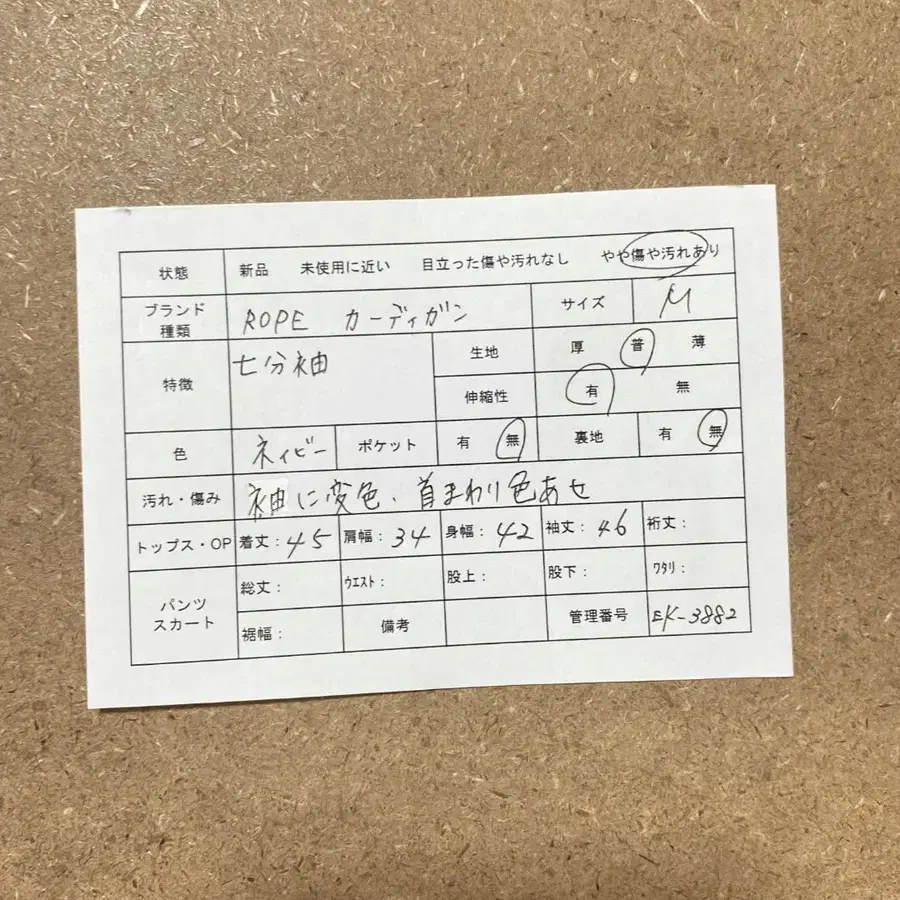 状態 新品 未使用に近い 目立った傷や汚れなし やや傷や汚れあり
ブランド 種類 ROPE カーディガン サイズ M
特徴 七分袖 生地 厚 普 薄
伸縮性 有 無
色 ネイビー ポケット 有 無 裏地 有 無
汚れ・傷み 袖に変色、首まわり色あせ
トップス・OP 着丈：45 肩幅：34 身幅：42 袖丈：46 裄丈：
パンツ スカート 総丈： ウエスト： 股上： 股下： ワタリ：
裾幅： 備考 管理番号 EK-3882